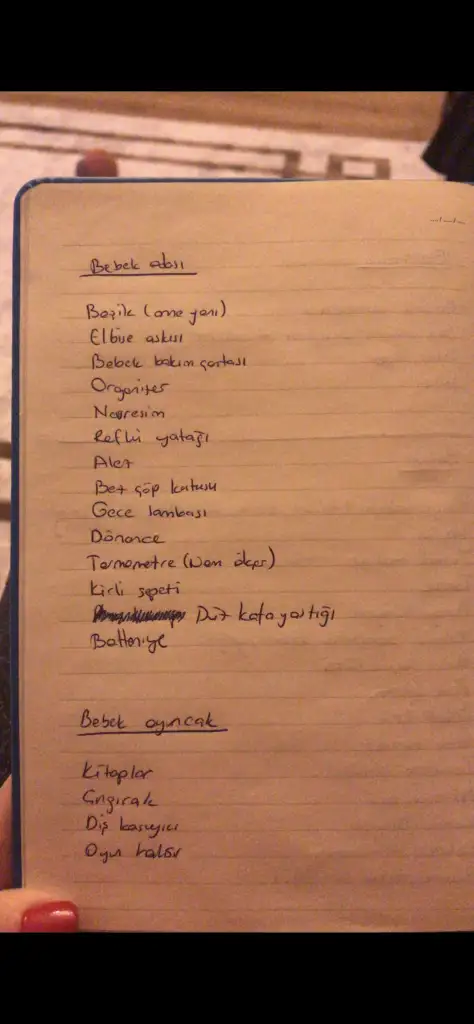 Bebek odası
Beşik (anne yanı)
Elbise askısı
Bebek bakım çantası
Organizer
Nevresim
Reflü yatağı
Alez
Bez çöp kutusu
Gece lambası
Dönence
Termometre (Nem ölçer)
Kirli sepeti
Düz kafa yastığı
Battaniye
Bebek oyuncak
Kitaplar
Çıngırak
Diş kaşıyıcı
Oyun halısı